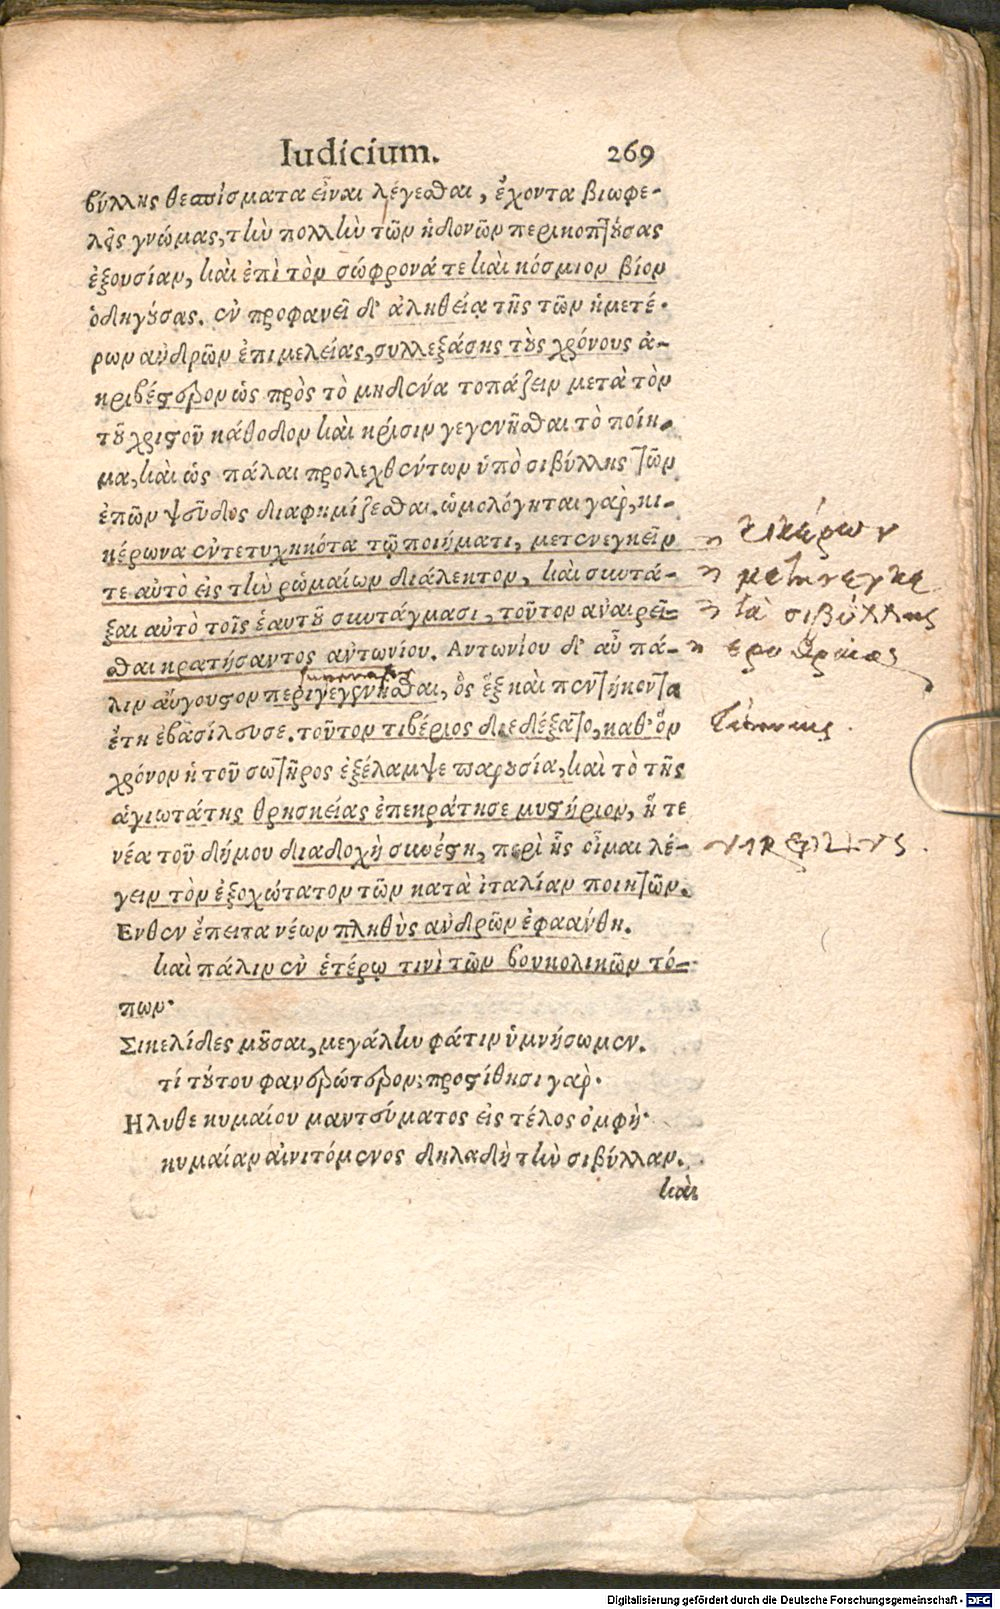 Iudicium. 269
βύλλης θεσπίσματα εἶναι λέγεσθαι, ἔχοντα βιωφε-
λεῖς γνώμας, τὴν πολλὴν τῶν ἡδονῶν περικοπτούσας
ἐξουσίαν, καὶ ἐπὶ τὸν σώφρονά τε καὶ κόσμιον βίον
ὁδηγούσας. ἐν προφανεῖ δ' ἀληθεία τῆς τῶν ἡμετέ-
ρων ἀνδρῶν ἐπιμελείας, συλλεξάσης τοὺς χρόνους ἀ-
κριβέστερον ὡς πρὸς τὸ μηδένα τοπάζειν μετὰ τὸν
τοῦ χριστοῦ κάθοδον καὶ κρίσιν γεγενῆσθαι τὸ ποίη-
μα, καὶ ὡς πάλαι προλεχθέντων ὑπὸ σιβύλλης τῶν
ἐπῶν ψεῦδος διαφημίζεσθαι. ὡμολόγηται γὰρ, κι-
κέρωνα ἐντετυχηκότα τῷ ποιήματι, μετενεγκεῖν
τε αὐτὸ εἰς τὴν ῥωμαίων διάλεκτον, καὶ συντά-
ξαι αὐτὸ τοῖς ἑαυτοῦ συντάγμασι, τοῦτον ἀναιρεῖ-
σθαι κρατήσαντος ἀντωνίου. Ἀντωνίου δ' αὖ πά-
λιν αὔγουστον περιγεγενῆσθαι, ὃς ἓξ καὶ πεντήκοντα
ἔτη ἐβασίλευσε. τοῦτον τιβέριος διεδέξατο, καθ' ὃν
χρόνον ἡ τοῦ σωτῆρος ἐξέλαμψε παρουσία, καὶ τὸ τῆς
ἁγιωτάτης θρησκείας ἐπεκράτησε μυστήριον, ἥ τε
νέα τοῦ δήμου διαδοχὴ συνέστη, περὶ ἧς οἶμαι λέ-
γειν τὸν ἐξοχώτατον τῶν κατὰ ἰταλίαν ποιητῶν.
Ενθεν ἔπειτα νέων πληθὺς ἀνδρῶν ἐφαάνθη.
καὶ πάλιν ἐν ἑτέρῳ τινὶ τῶν βουκολικῶν τό-
πων·
Σικελίδες μοῦσαι, μεγάλην φάτιν ὑμνήσωμεν.
τί τούτου φανερώτερον; προστίθησι γὰρ·
Ηλυθε κυμαίου μαντεύματος εἰς τέλος ὀμφὴ·
κυμαίαν αἰνιτόμενος δηλαδὴ τὴν σιβύλλαν.
καὶ
κικέρων
μετηνεγκε
τὰ σιβύλλης
ερυθραίας
Digitalisierung gefördert durch die Deutsche Forschungsgemeinschaft - DFG